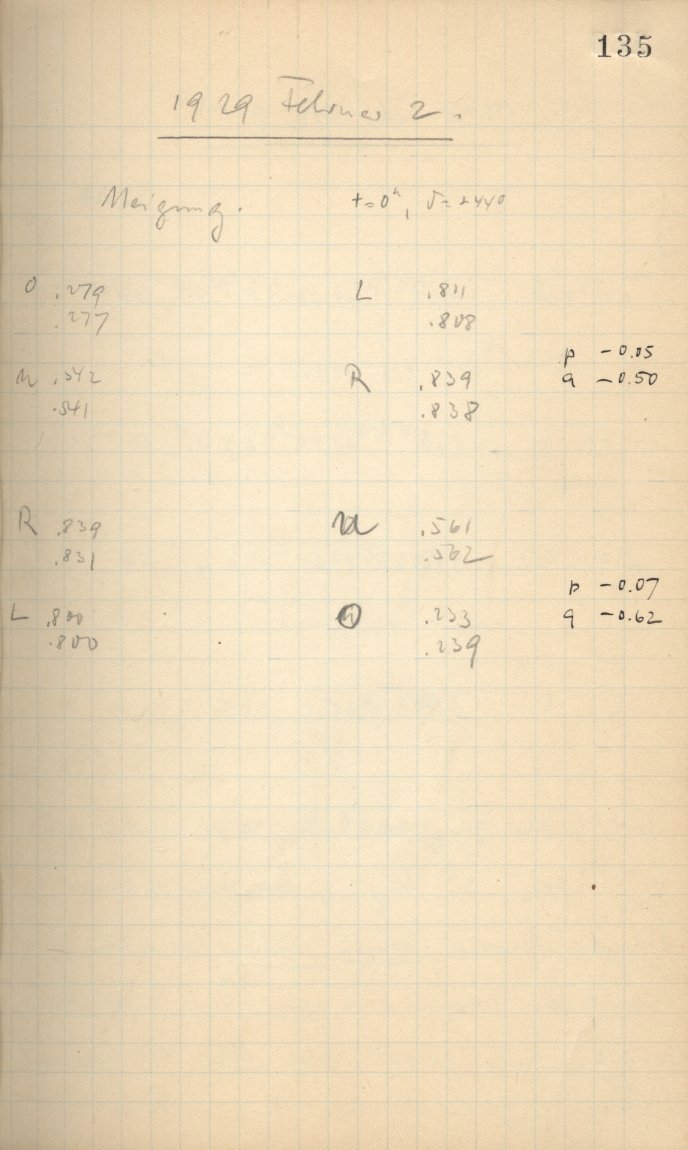 135
1929 Februar 2.
Neigung. t=0ʰ, δ=+440
O .279 L .811
.277 .808
p -0.05
u .542 R .839 q -0.50
.541 .838
R .839 u .561
.831 .562
p -0.07
L .800 O .233 q -0.62
.800 .239